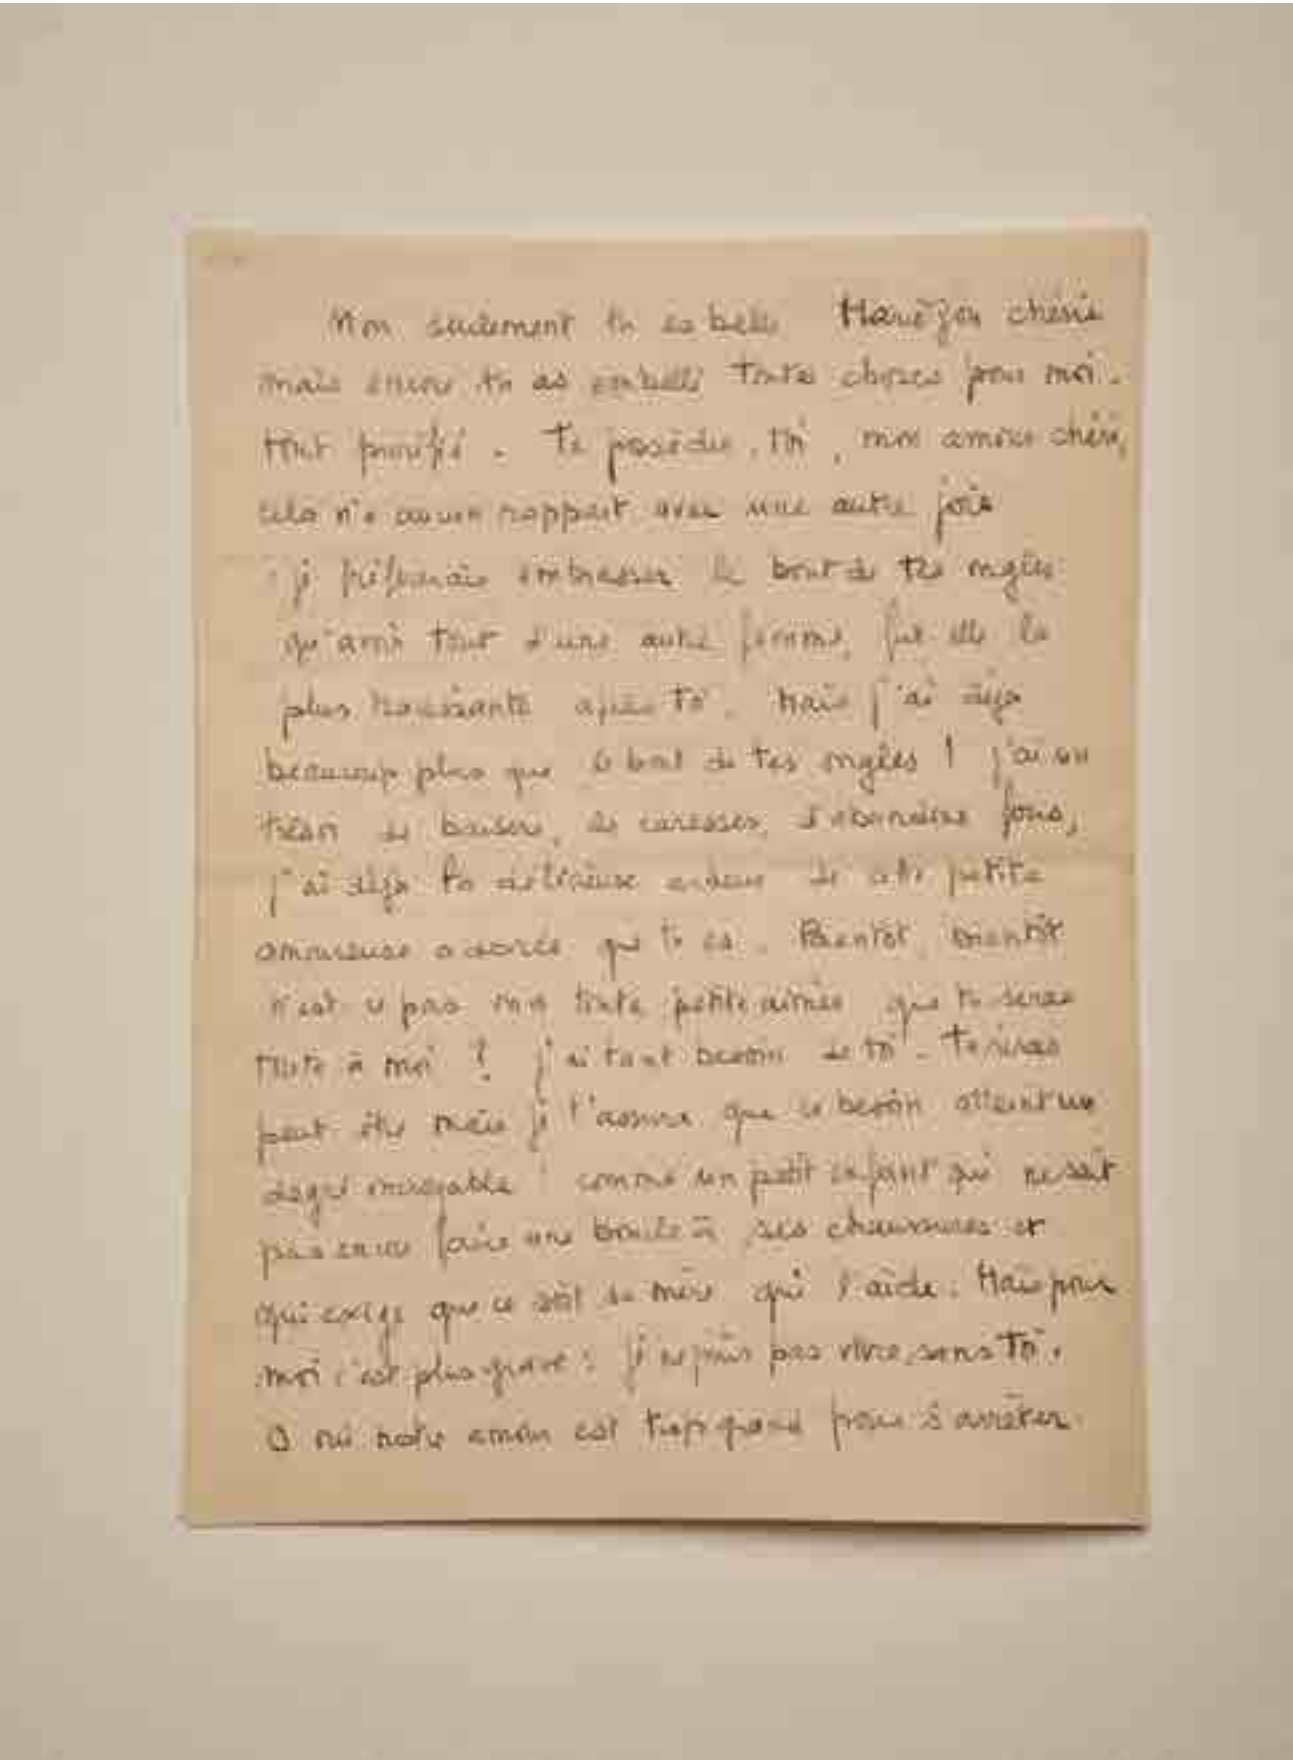 Non seulement tu es belle chérie
mais encore tu as embelli toutes choses pour moi.
tout purifié. Te posséder, toi, mon amour chéri,
cela n'a aucun rapport avec une autre joie
je préférerais embrasser le bout de tes ongles
qu'avoir tout d'une autre femme, fut elle la
plus ravissante après toi. Mais j'ai déjà
beaucoup plus que le bout de tes ongles ! j'ai un
trésor de baisers, de caresses, d'abandons fous,
j'ai déjà ta délicieuse ardeur de petite
amoureuse adorée que tu es. Bientôt, bientôt
n'est ce pas ma toute petite aimée que tu seras
toute à moi ? j'ai tant besoin de toi. Tu riras
peut être mais je t'assure que ce besoin atteint un
degré incroyable : comme un petit enfant qui ne sait
pas encore faire une boucle à ses chaussures et
qui exige que ce soit sa mère qui l'aide. Mais pour
moi c'est plus grave : je ne puis pas vivre sans toi.
O oui notre amour est trop grand pour s'arrêter